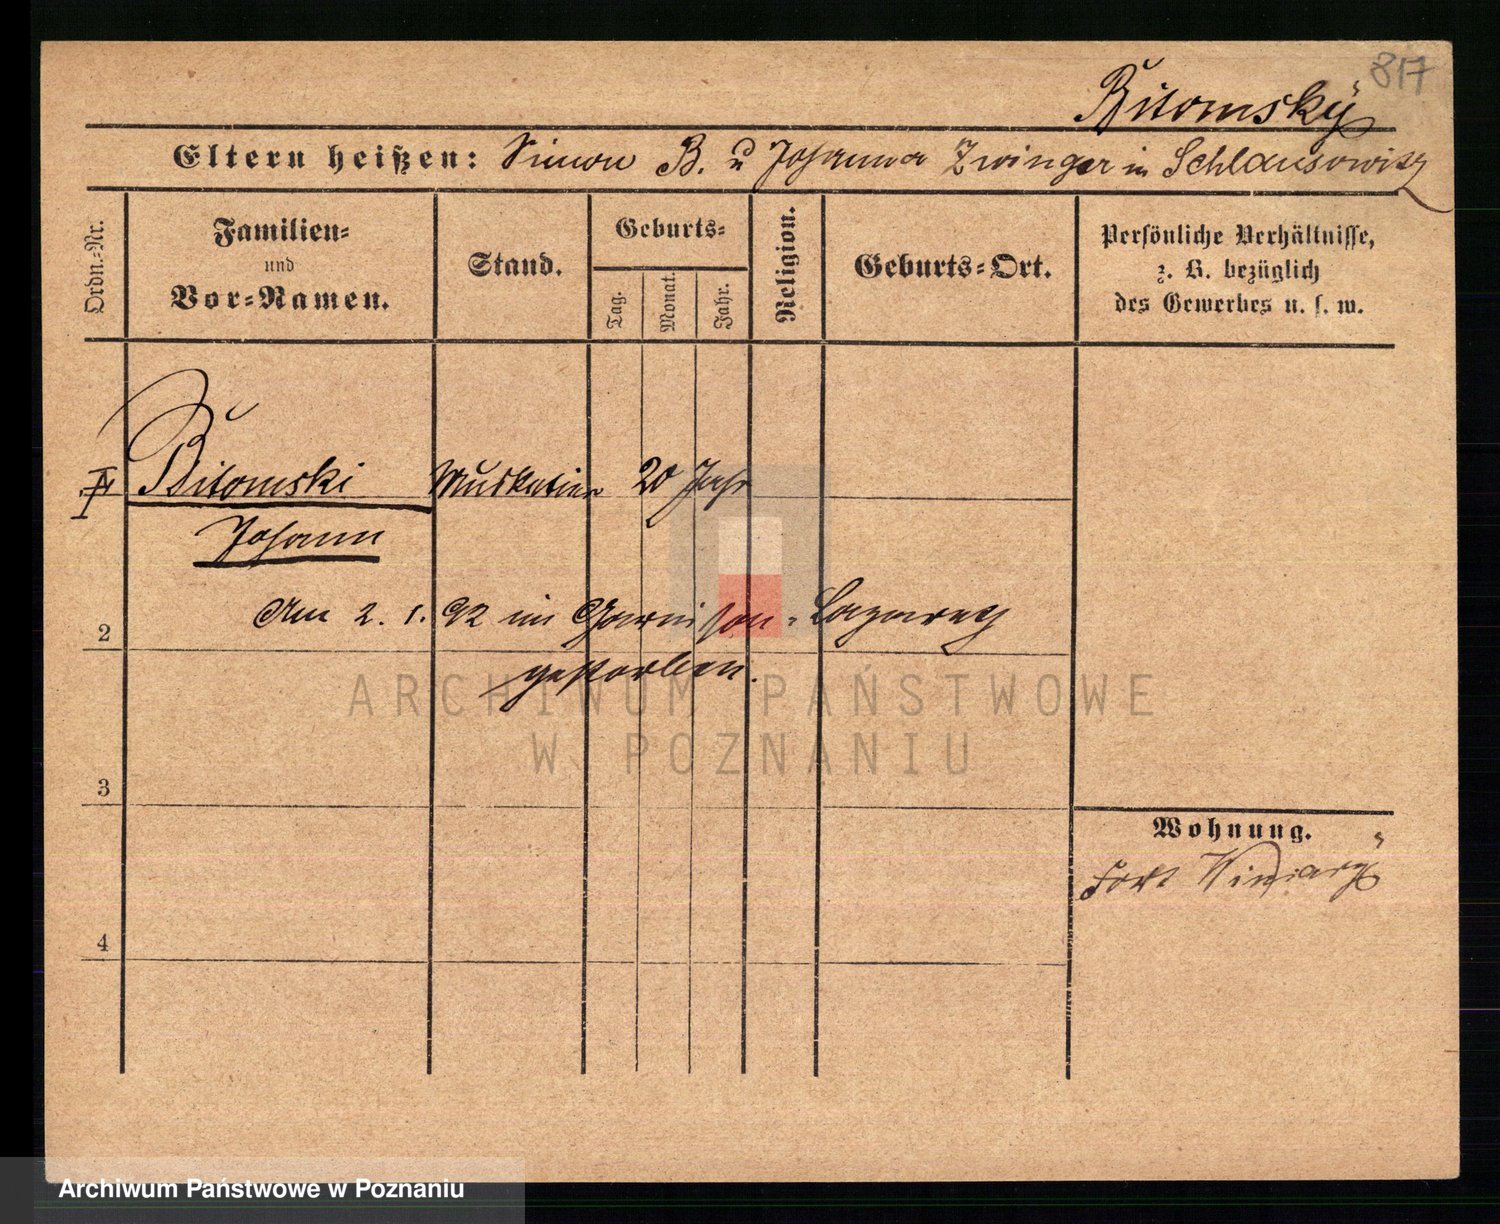 817
Bitomský
Eltern heißen: Simon B. u Johanna Zwinger in Schlausowitz
Ordn.-Nr.
Familien-
und
Vor-Namen.
Stand.
Geburts-
Tag.
Monat.
Jahr.
Religion.
Geburts-Ort.
Persönliche Verhältnisse,
z. B. bezüglich
des Gewerbes u. s. w.
Bitomski Muskatier 20 Jahr
Johann
Am 2. 1. 92 im Garnison-Lazareth
2
gestorben.
3
4
Wohnung.
Fort Winiarÿ
ARCHIWUM PAŃSTWOWE
W POZNANIU
Archiwum Państwowe w Poznaniu